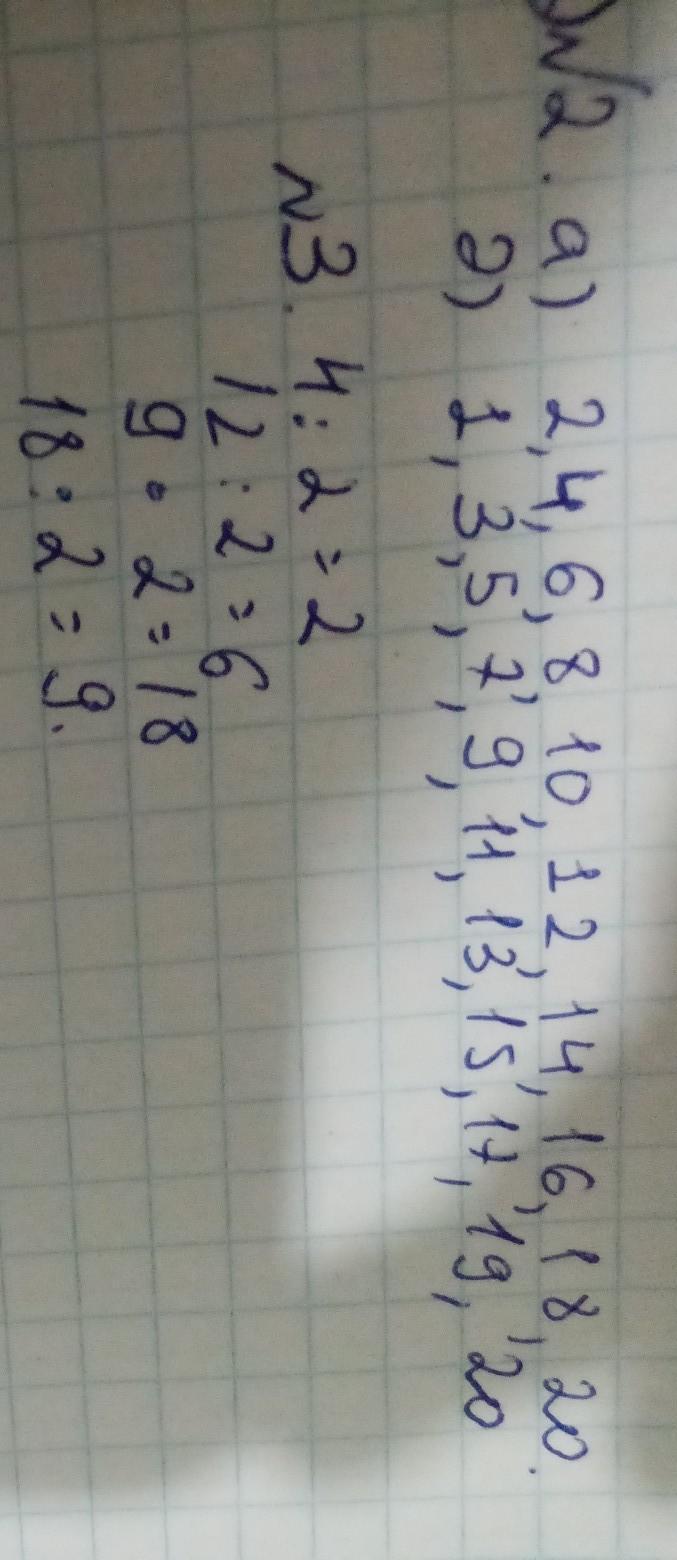 №2. а) 2, 4, 6, 8 10, 12, 14, 16, 18, 20.
2) 1, 3, 5, 7, 9, 11, 13, 15, 17, 19, 20
№3. 4 : 2 = 2
12 : 2 = 6
9 • 2 = 18
18 : 2 = 9.